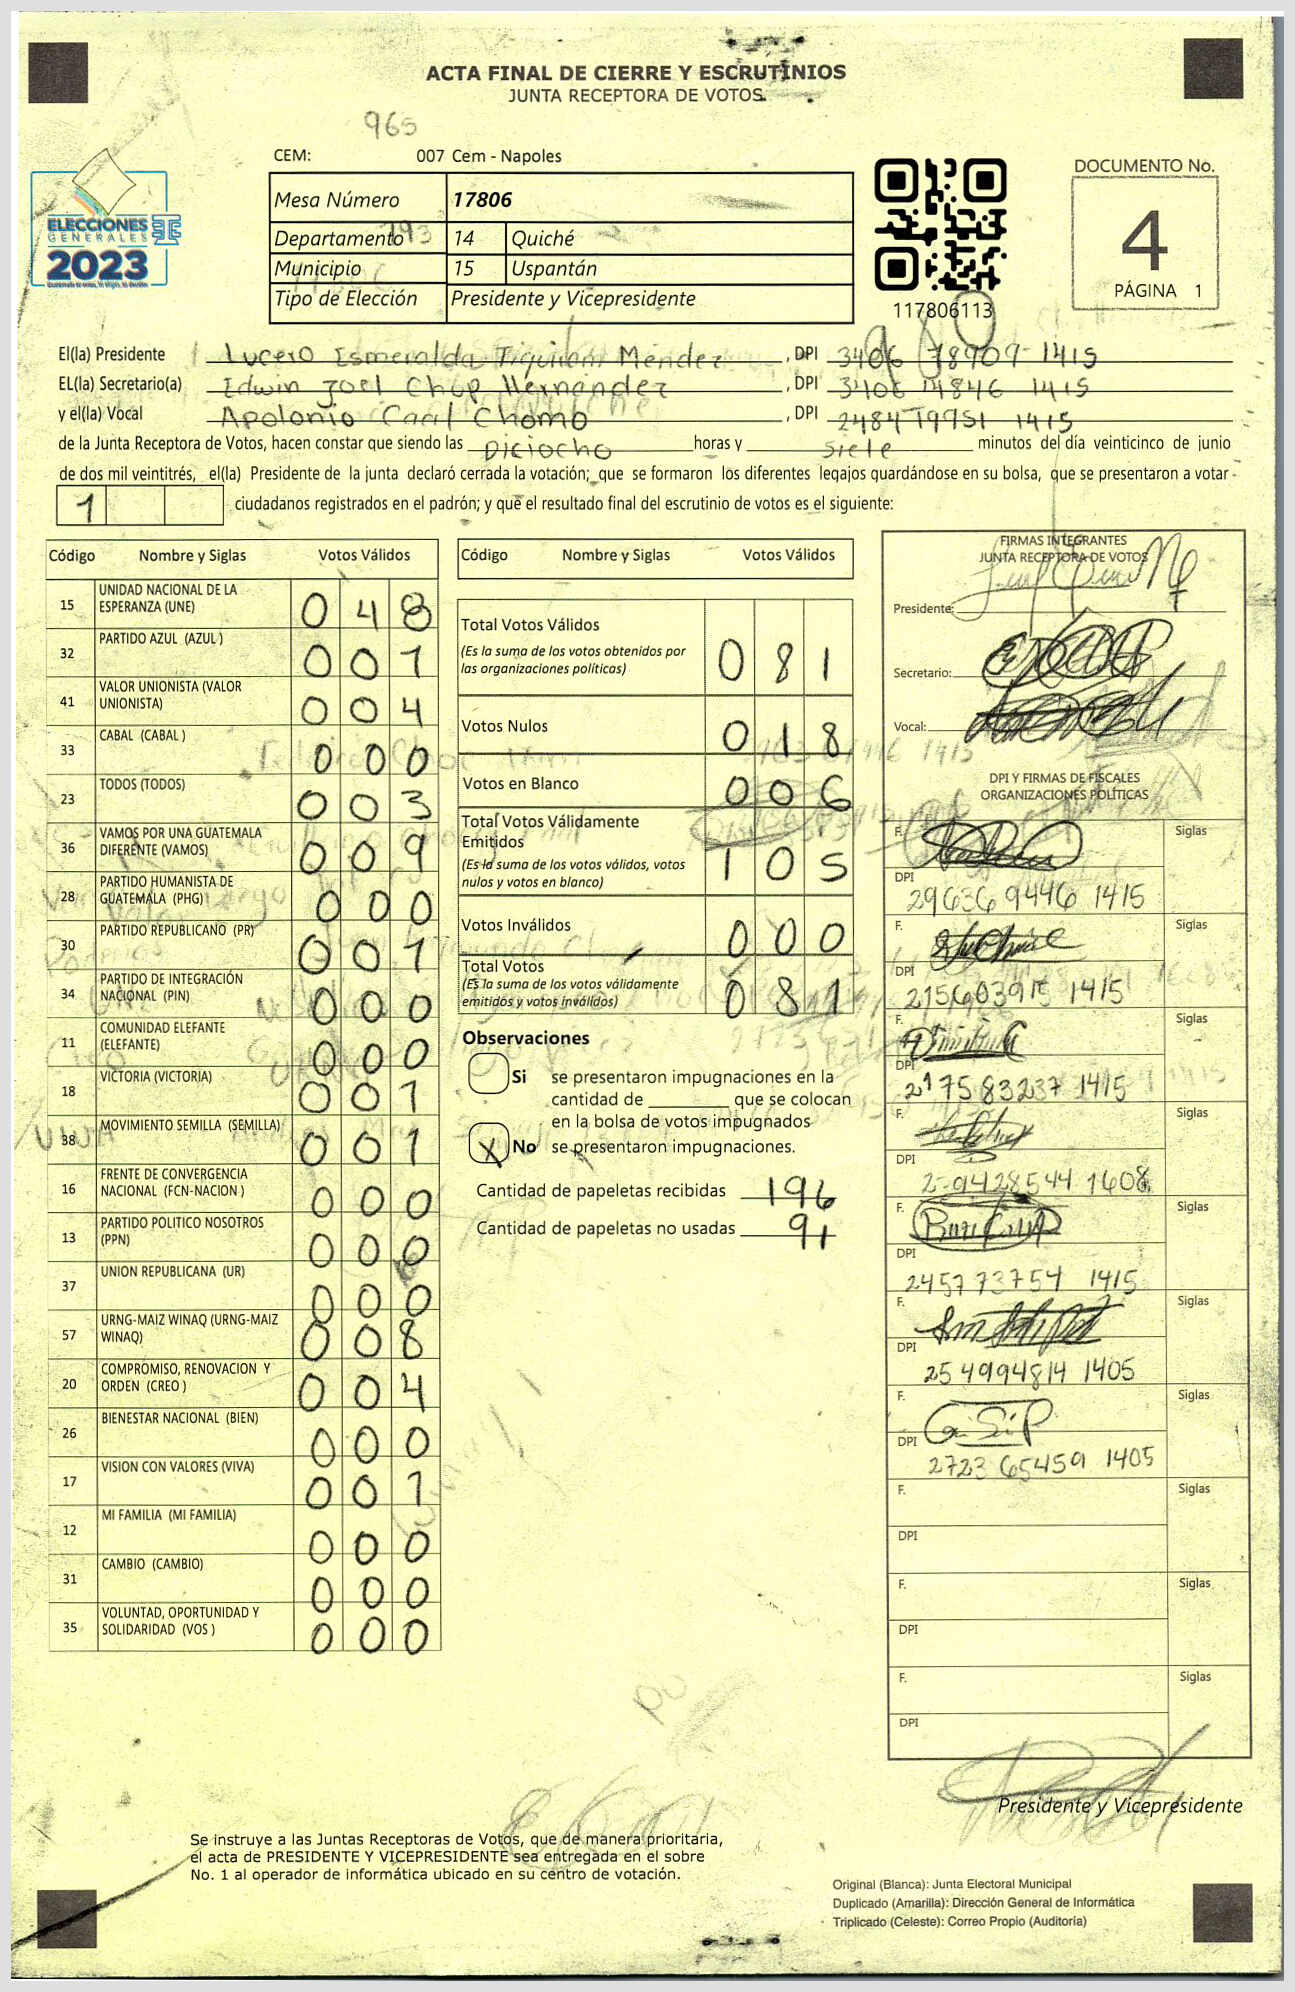 ACTA FINAL DE CIERRE Y ESCRUTINIOS
JUNTA RECEPTORA DE VOTOS
965
CEM: 007 Cem - Napoles
ELECCIONES
GENERALES
2023
Mesa Número 17806
Departamento 14 Quiché
Municipio 15 Uspantán
Tipo de Elección Presidente y Vicepresidente
117806113
DOCUMENTO No.
4
PÁGINA 1
El(la) Presidente Lucero Esmeralda Tiquiram Méndez, DPI 3406 78909 1415
EL(la) Secretario(a) Edwin Joel Chop Hernández, DPI 3406 14846 1415
y el(la) Vocal Apolonio Caal Chomo, DPI 2484 19951 1415
de la Junta Receptora de Votos, hacen constar que siendo las Diciocho horas y Siete minutos del día veinticinco de junio
de dos mil veintitrés, el(la) Presidente de la junta declaró cerrada la votación; que se formaron los diferentes legajos guardándose en su bolsa, que se presentaron a votar
1 ciudadanos registrados en el padrón; y que el resultado final del escrutinio de votos es el siguiente:
Código Nombre y Siglas Votos Válidos
15 UNIDAD NACIONAL DE LA ESPERANZA (UNE) 0 4 8
32 PARTIDO AZUL (AZUL ) 0 0 1
41 VALOR UNIONISTA (VALOR UNIONISTA) 0 0 4
33 CABAL (CABAL ) 0 0 0
23 TODOS (TODOS) 0 0 3
36 VAMOS POR UNA GUATEMALA DIFERENTE (VAMOS) 0 0 9
28 PARTIDO HUMANISTA DE GUATEMALA (PHG) 0 0 0
30 PARTIDO REPUBLICANO (PR) 0 0 1
34 PARTIDO DE INTEGRACIÓN NACIONAL (PIN) 0 0 0
11 COMUNIDAD ELEFANTE (ELEFANTE) 0 0 0
18 VICTORIA (VICTORIA) 0 0 1
38 MOVIMIENTO SEMILLA (SEMILLA) 0 0 1
16 FRENTE DE CONVERGENCIA NACIONAL (FCN-NACION ) 0 0 0
13 PARTIDO POLITICO NOSOTROS (PPN) 0 0 0
37 UNION REPUBLICANA (UR) 0 0 0
57 URNG-MAIZ WINAQ (URNG-MAIZ WINAQ) 0 0 8
20 COMPROMISO, RENOVACION Y ORDEN (CREO ) 0 0 4
26 BIENESTAR NACIONAL (BIEN) 0 0 0
17 VISION CON VALORES (VIVA) 0 0 1
12 MI FAMILIA (MI FAMILIA) 0 0 0
31 CAMBIO (CAMBIO) 0 0 0
35 VOLUNTAD, OPORTUNIDAD Y SOLIDARIDAD (VOS ) 0 0 0
Código Nombre y Siglas Votos Válidos
Total Votos Válidos 0 8 1
(Es la suma de los votos obtenidos por
las organizaciones políticas)
Votos Nulos 0 1 8
Votos en Blanco 0 0 6
Total Votos Válidamente
Emitidos 1 0 5
(Es la suma de los votos válidos, votos
nulos y votos en blanco)
Votos Inválidos 0 0 0
Total Votos 0 8 1
(Es la suma de los votos válidamente
emitidos y votos inválidos)
Observaciones
Si se presentaron impugnaciones en la
cantidad de ________ que se colocan
en la bolsa de votos impugnados
X No se presentaron impugnaciones.
Cantidad de papeletas recibidas 196
Cantidad de papeletas no usadas 91
FIRMAS INTEGRANTES
JUNTA RECEPTORA DE VOTOS
Presidente:
Secretario:
Vocal:
DPI Y FIRMAS DE FISCALES
ORGANIZACIONES POLÍTICAS
F. Siglas
DPI 29636 9446 1415
F. Siglas
DPI 215603915 1415
F. Siglas
DPI 2175 83237 1415
F. Siglas
DPI 1608
F. Siglas
DPI 2457 73754 1415
F. Siglas
DPI 25 4994814 1405
F. Siglas
DPI 2723 65459 1405
F. Siglas
DPI
F. Siglas
DPI
F. Siglas
DPI
Presidente y Vicepresidente
Se instruye a las Juntas Receptoras de Votos, que de manera prioritaria,
el acta de PRESIDENTE Y VICEPRESIDENTE sea entregada en el sobre
No. 1 al operador de informática ubicado en su centro de votación.
Original (Blanca): Junta Electoral Municipal
Duplicado (Amarilla): Dirección General de Informática
Triplicado (Celeste): Correo Propio (Auditoría)